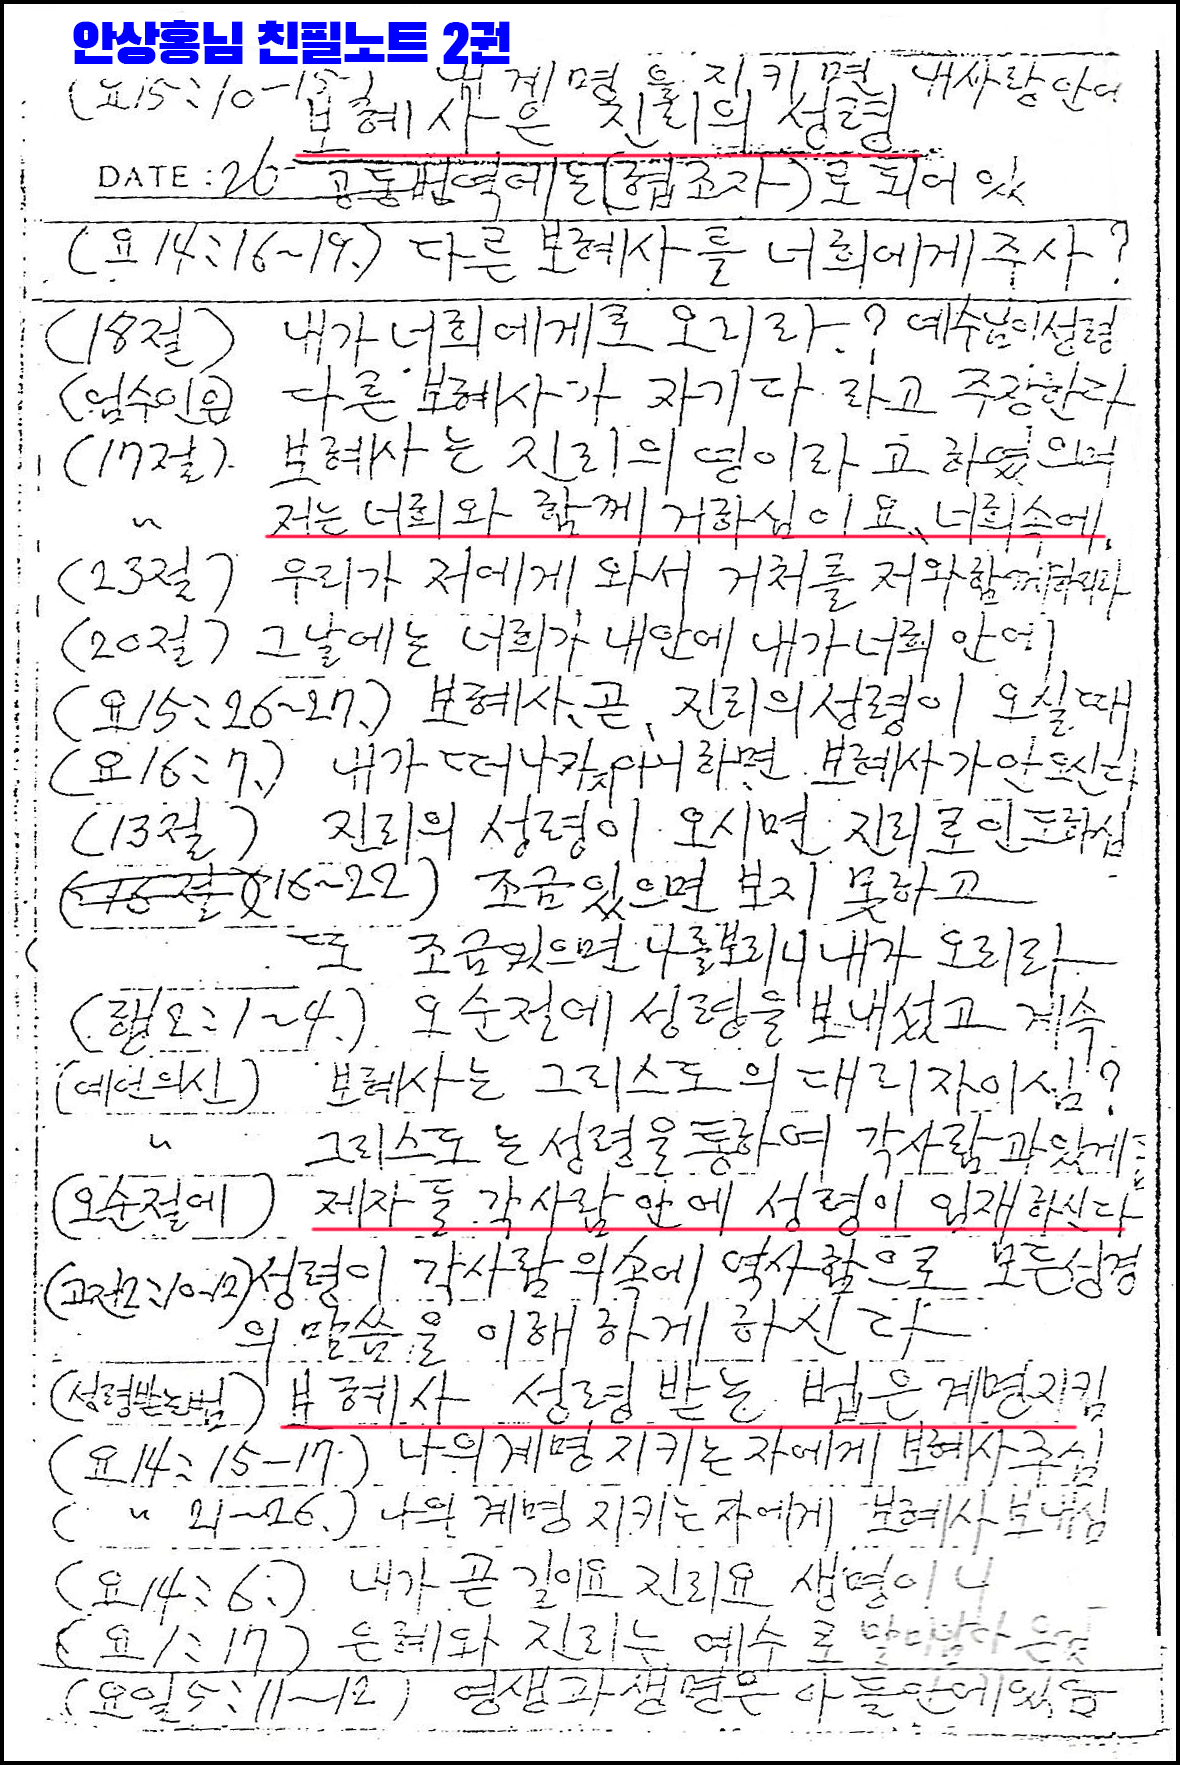 안상홍님 친필노트 2권
(요15:10-15) 내 계명을 지키면 내사랑안에
보혜사은 진리의 성령
DATE: 26 공동번역에는(협조자)로 되어 있
(요14:16~19.) 다른 보혜사를 너희에게 주사?
(18절) 내가 너희에게로 오리라.? 예수님이성령
(엄수인은) 다른 보혜사가 자기다 라고 주장한다
(17절). 보혜사는 진리의 영이라고 하였으며
〃 저는 너희와 함께 거하심이요, 너희속에
(23절) 우리가 저에게 와서 거처를 저와함께하리라
(20절) 그날에는 너희가 내안에 내가너희 안에
(요15:26~27.) 보혜사, 곧, 진리의성령이 오실때
(요16:7.) 내가 떠나가지아니하면 보혜사가안오신다
(13절) 진리의 성령이 오시면 진리로인도하심
(16절)(16~22) 조금있으면 보지 못하고
또 조금있으면 나를보리니 내가 오리라
(행2:1~4.) 오순절에 성령을 보내셨고 계속
(예언의신) 보혜사는 그리스도의 대리자이심?
〃 그리스도는 성령을통하여 각사람과있게
(오순절에) 제자들 각사람 안에 성령이 임재하신다
(고전2:10-12) 성령이 각사람의속에 역사함으로 모든성경
의 말씀을 이해하게 하신다
(성령받는법) 보혜사 성령 받는 법은 계명지킴
(요14:15-17.) 나의계명 지키는자에게 보혜사주심
(〃 21~26.) 나의 계명 지키는자에게 보혜사보내심
(요14:6.) 내가 곧 길이요 진리요 생명이니
(요1:17) 은혜와 진리는 예수로 말미암아 온것
(요일5:11~12) 영생과생명은 아들안에있음